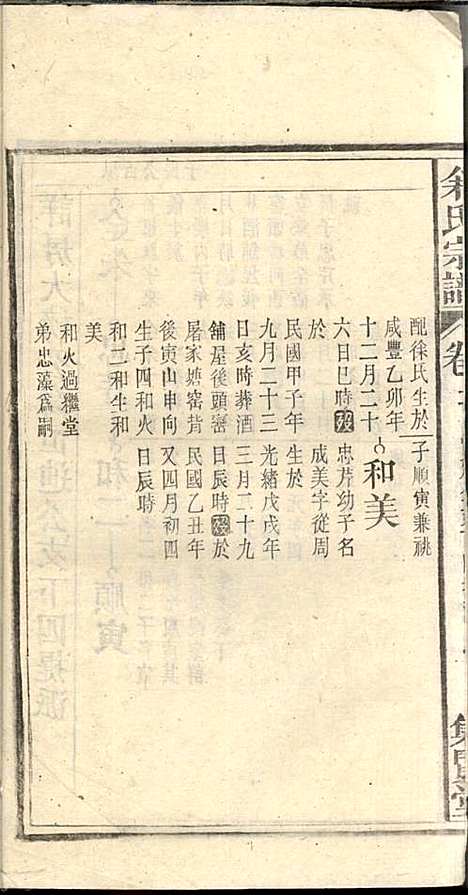 氏宗譜 卷
集賢堂
配徐氏生於
咸豐乙卯年
十二月二十
六日巳時歿
於
民國甲子年
九月二十三
日亥時葬酒
舖屋後頭窰
屠家塘窑背
後寅山申向
生子四和火
和三和生和
美
和火過繼堂
弟忠藻爲嗣
子順寅兼祧
和美
忠芹幼子名
成美字從周
生於
光緒戊戌年
三月二十九
日辰時歿於
民國乙丑年
又四月初四
日辰時